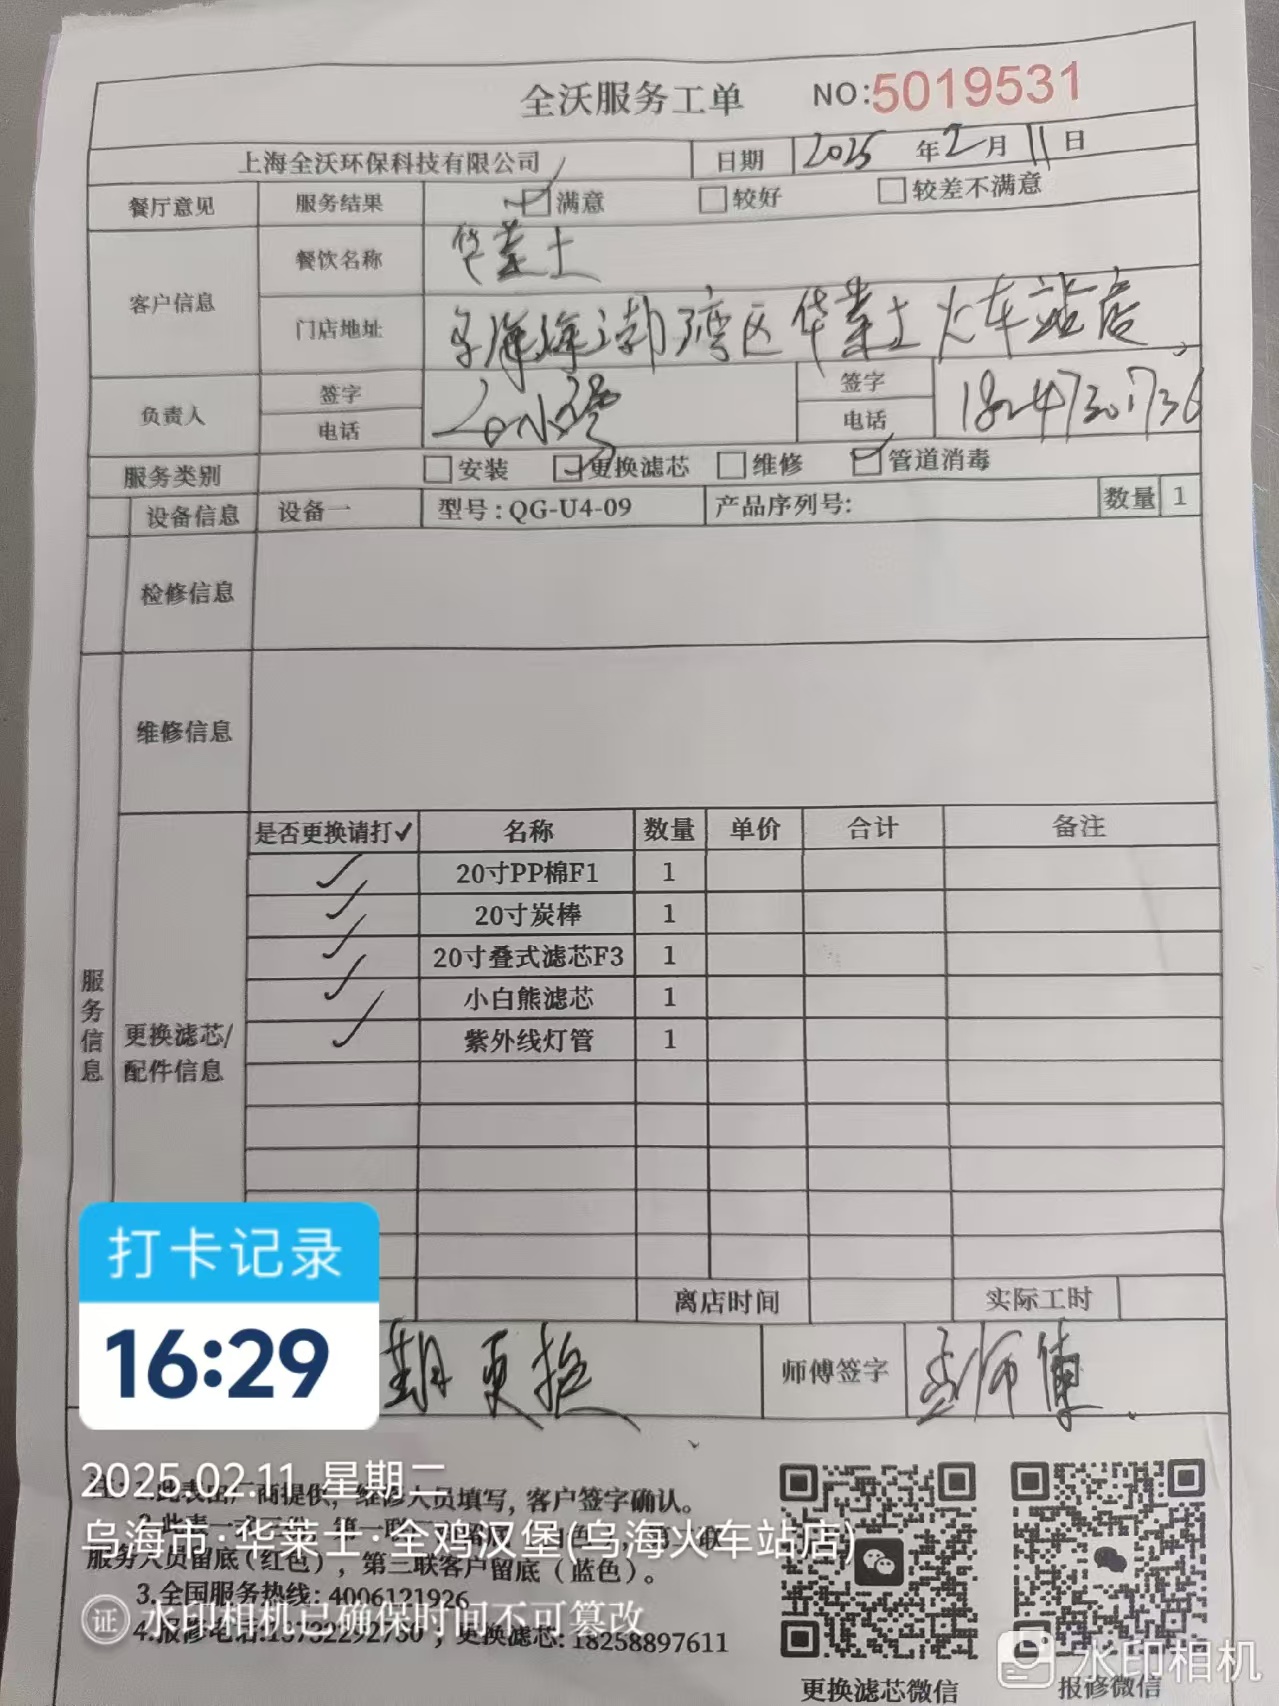 全沃服务工单 NO:5019531
上海全沃环保科技有限公司 日期 2025年2月11日
餐厅意见 服务结果 满意 较好 较差不满意
客户信息 餐饮名称 华莱士
门店地址 乌海海勃湾区华莱士火车站店
负责人 签字 签字
电话 电话
服务类别 安装 更换滤芯 维修 管道消毒
设备信息 设备一 型号:QG-U4-09 产品序列号: 数量 1
检修信息
维修信息
服务信息
更换滤芯/
配件信息
是否更换请打✓ 名称 数量 单价 合计 备注
✓ 20寸PP棉F1 1
✓ 20寸炭棒 1
✓ 20寸叠式滤芯F3 1
✓ 小白熊滤芯 1
✓ 紫外线灯管 1
离店时间 实际工时
期更换 师傅签字 孟师傅
打卡记录
16:29
2025.02.11 星期二
乌海市·华莱士·全鸡汉堡(乌海火车站店)
水印相机已确保时间不可篡改
商提供, 维修人员填写, 客户签字确认。
服务人员留底(红色), 第三联客户留底(蓝色)。
3.全国服务热线: 4006121926
4.报修电话: , 更换滤芯: 18258897611
更换滤芯微信 报修微信
证
水印相机